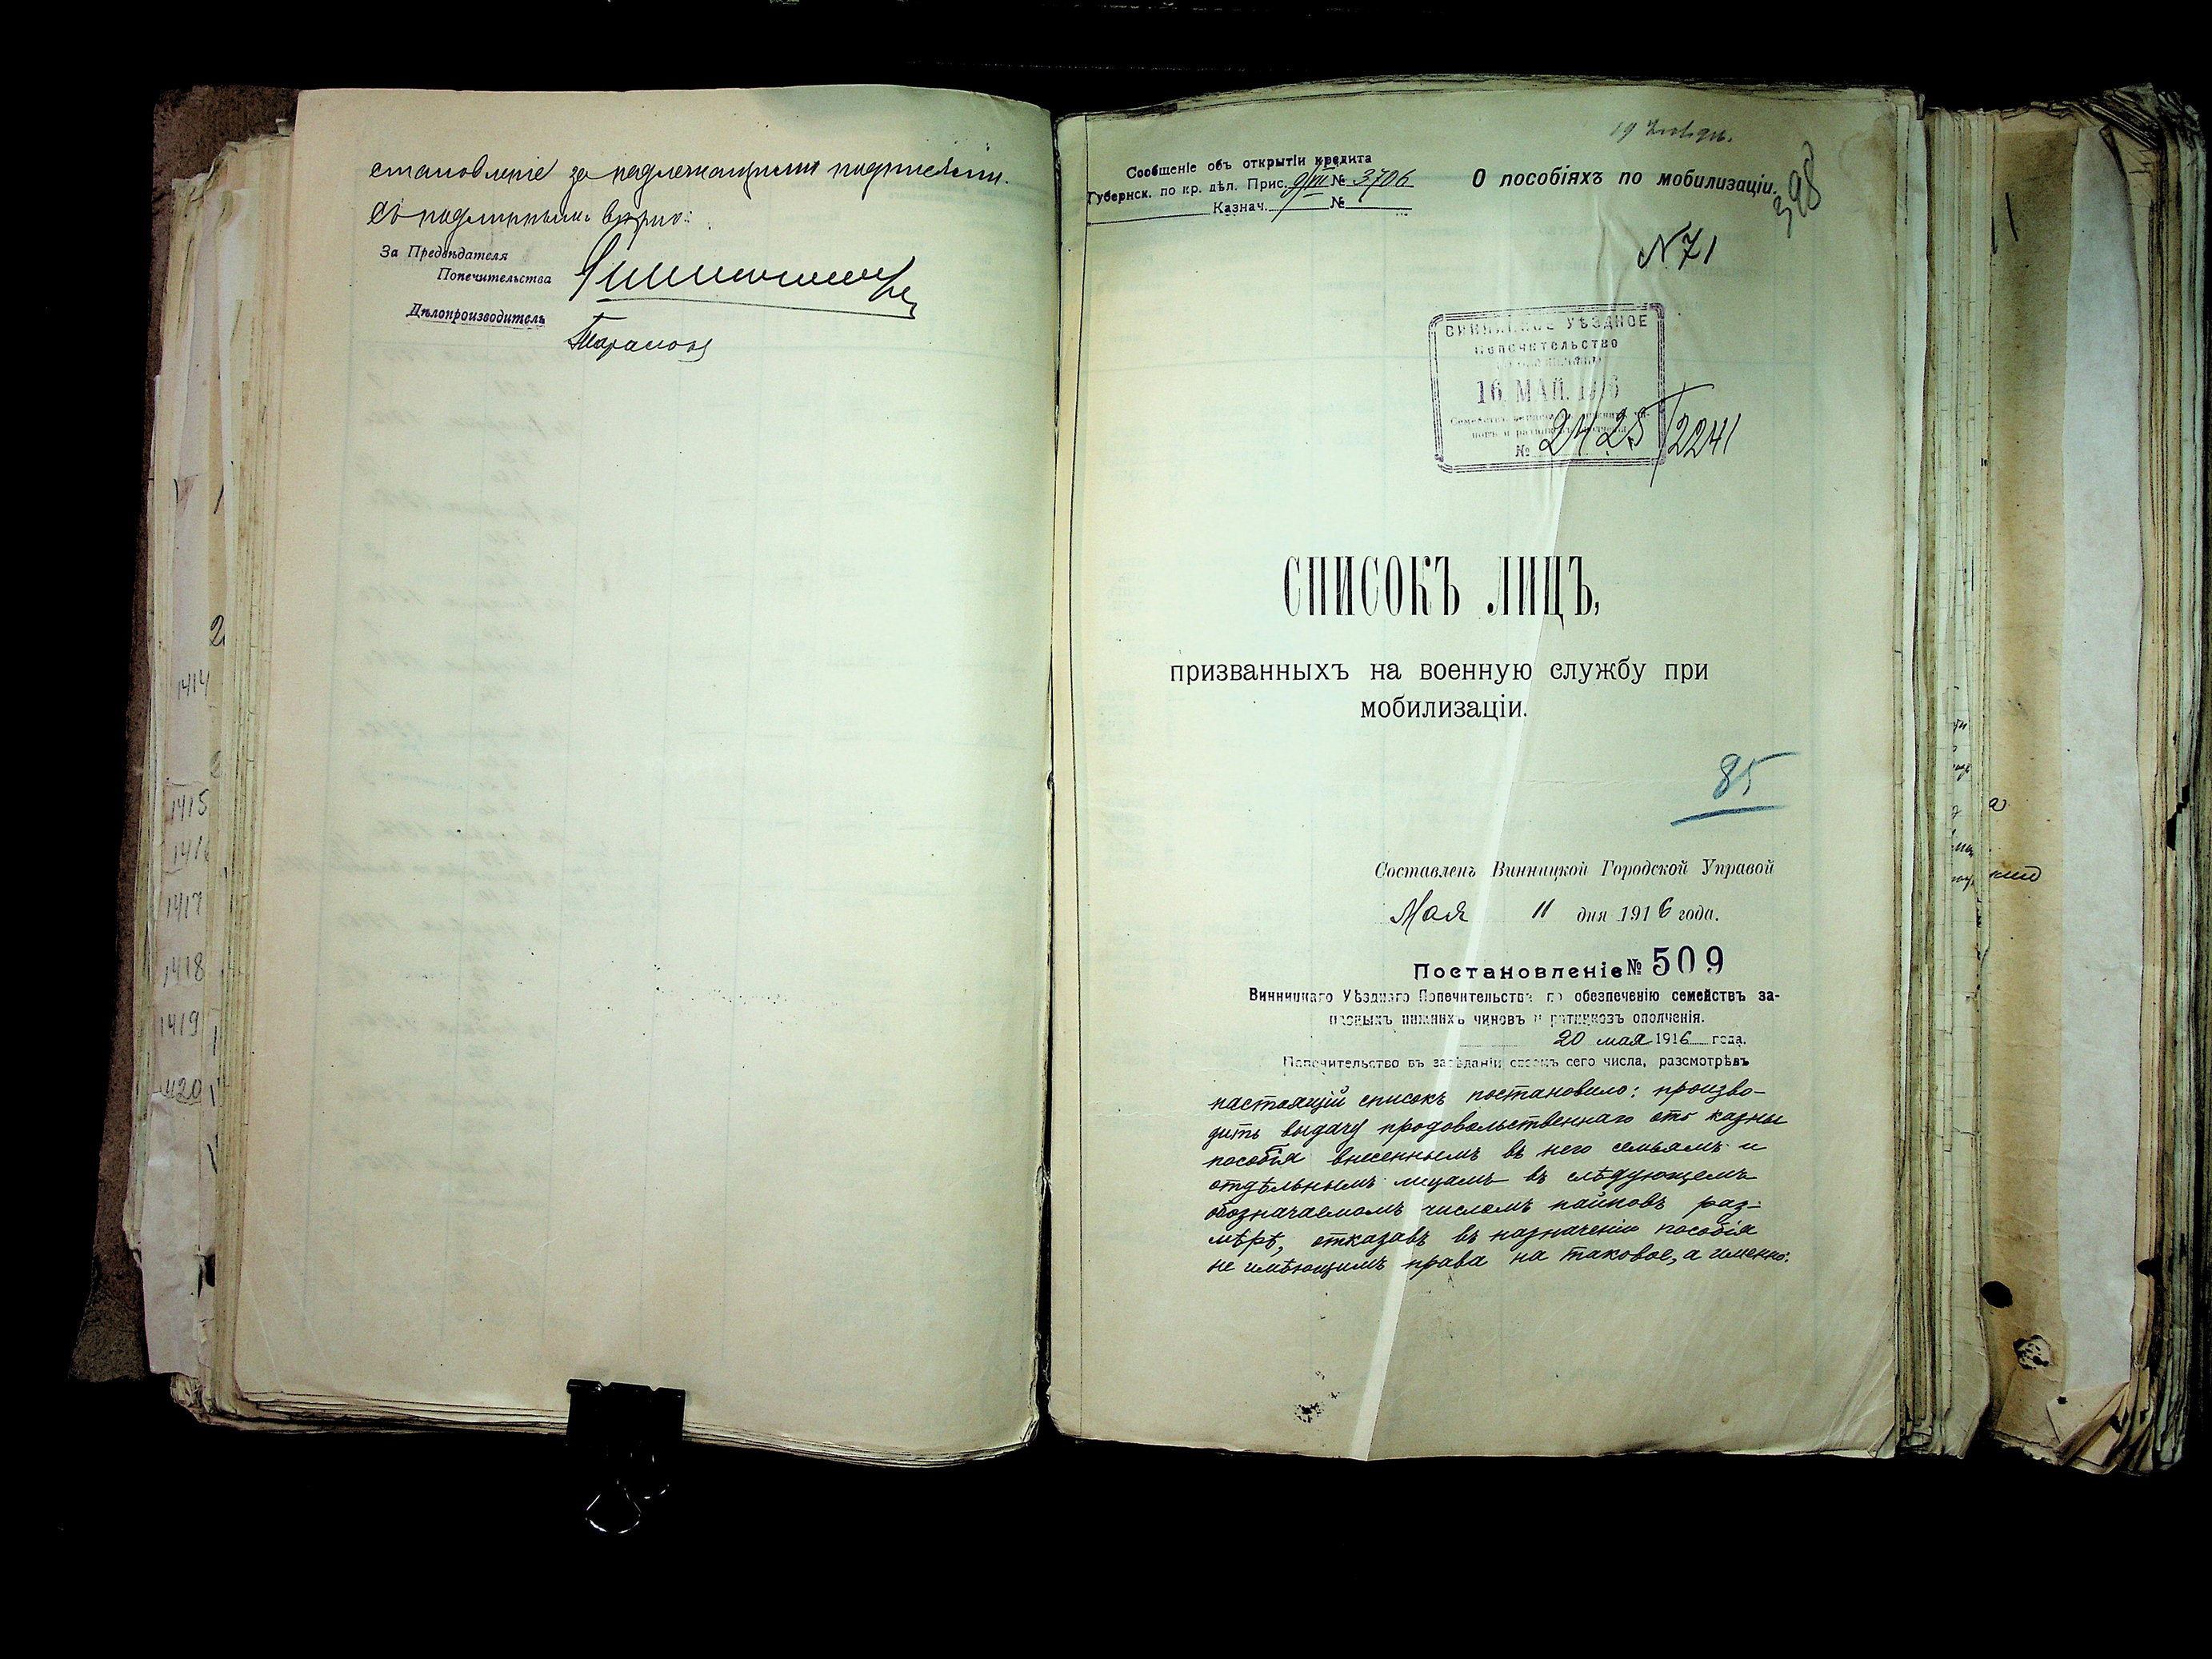 становленіе за надлежащими подписями.
Съ подлиннымъ вѣрно:
За Предсѣдателя
Попечительства
Дѣлопроизводитель
1414
1415
1416
1417
1418
1419
1420
Сообщеніе объ открытіи кредита
Губернск. по кр. дѣл. Прис. 9/VII № 3706
Казнач. №
О пособіяхъ по мобилизаціи.
398
N 71
ВИННИЦКОЕ УѢЗДНОЕ
Попечительство
16 МАЙ. 1916
№ 2425/2241
СПИСОКЪ ЛИЦЪ,
призванныхъ на военную службу при
мобилизаціи.
85
Составленъ Винницкой Городской Управой
Мая 11 дня 1916 года.
Постановленіе № 509
Винницкаго Уѣзднаго Попечительства по обезпеченію семействъ за-
пасныхъ нижнихъ чиновъ и ратниковъ ополченія.
20 мая 1916 года.
Попечительство въ засѣданіи своемъ сего числа, разсмотрѣвъ
настоящій списокъ постановило: произво-
дить выдачу продовольственнаго отъ казны
пособія внесеннымъ въ него семьямъ и
отдѣльнымъ лицамъ въ слѣдующемъ
обозначаемомъ числомъ пайковъ раз-
мѣрѣ, отказавъ въ назначеніи пособія
не имѣющимъ права на таковое, а именно: